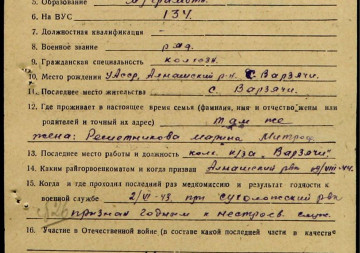 5. Образование малограмотн.
6. На ВУС 134
7. Должностная квалификация -
8. Военное звание ряд.
9. Гражданская специальность колхозн.
10. Место рождения УАССР, Алнашский р-н, С. Варзячи.
11. Последнее место жительства с. Варзячи.
12. Где проживает в настоящее время семья (фамилия, имя и отчество жены или
родителей и точный их адрес) там же
жена: Решетникова Марина Митроф.
13. Последнее место работы и должность колх. к/за „Варзячи"
14. Каким райгорвоенкоматом и когда призван Алнашский рвк
15. Когда и где проходил последний раз медкомиссию и результат годности к
военной службе 2/VI-43. при рвк
признан годным к нестроев. служ.
16. Участие в Отечественной войне (в составе какой последней части в качестве